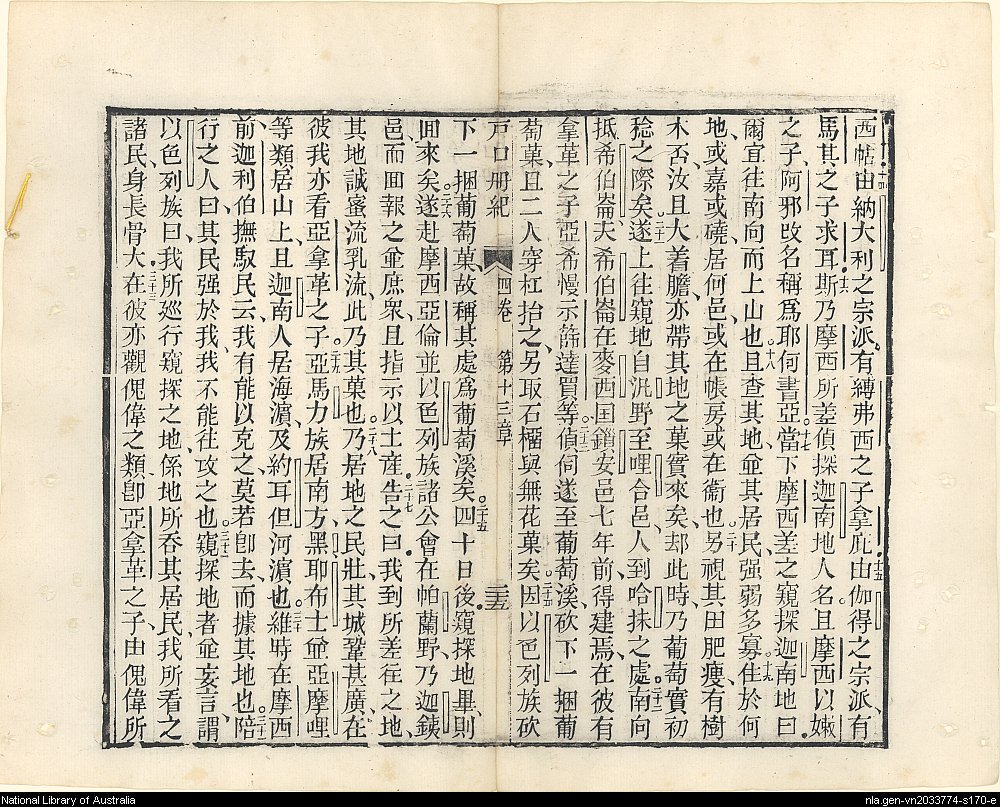 西帖由納大利之宗派有縛弗西之子拿庇由伽得之宗派有
馬其之子求耳斯乃摩西所差偵探迦南地人名且摩西以嫩
之子阿邪攺名稱爲耶何書亞當下摩西差之窺探迦南地曰
爾宜往南向而上山也且查其地並其居民强弱多寡住於何
地或嘉或磽居何邑或在帳房或在衞也另視其田肥瘦有樹
木否汝且大着膽亦帶其地之菓實來矣却此時乃葡萄實初
稔之際矣遂上往窺地自汎野至哩合邑人到哈抹之處南向
抵希伯崙夫希伯崙在麥西国鎖安邑七年前得建焉在彼有
拿革之子亞希慢示篩達買等偵伺遂至葡萄溪砍下一捆葡
萄菓且二人穿杠抬之另取石橊與無花菓矣因以色列族砍
戶口册紀 四卷 第十三章 二十五
下一捆葡萄菓故稱其處爲葡萄溪矣四十日後窺探地畢則
囬來矣遂赴摩西亞倫並以色列族諸公會在帕蘭野乃迦鉄
邑而囬報之並庶衆且指示以土產告之曰我到所差往之地
其地誠蜜流乳流此乃其菓也乃居地之民壯其城鞏甚廣在
彼我亦看亞拿革之子亞馬力族居南方黑耶布士並亞摩哩
等類居山上且迦南人居海濵及約耳但河濵也維時在摩西
前迦利伯撫馭民云我有能以克之莫若卽去而據其地也陪
行之人曰其民强於我我不能往攻之也窺探地者並妄言謂
以色列族曰我所巡行窺探之地係地所吞其居民我所看之
諸民身長骨大在彼亦觀傀偉之類卽亞拿革之子由傀偉所
National Library of Australia
nla.gen-vn2033774-s170-e